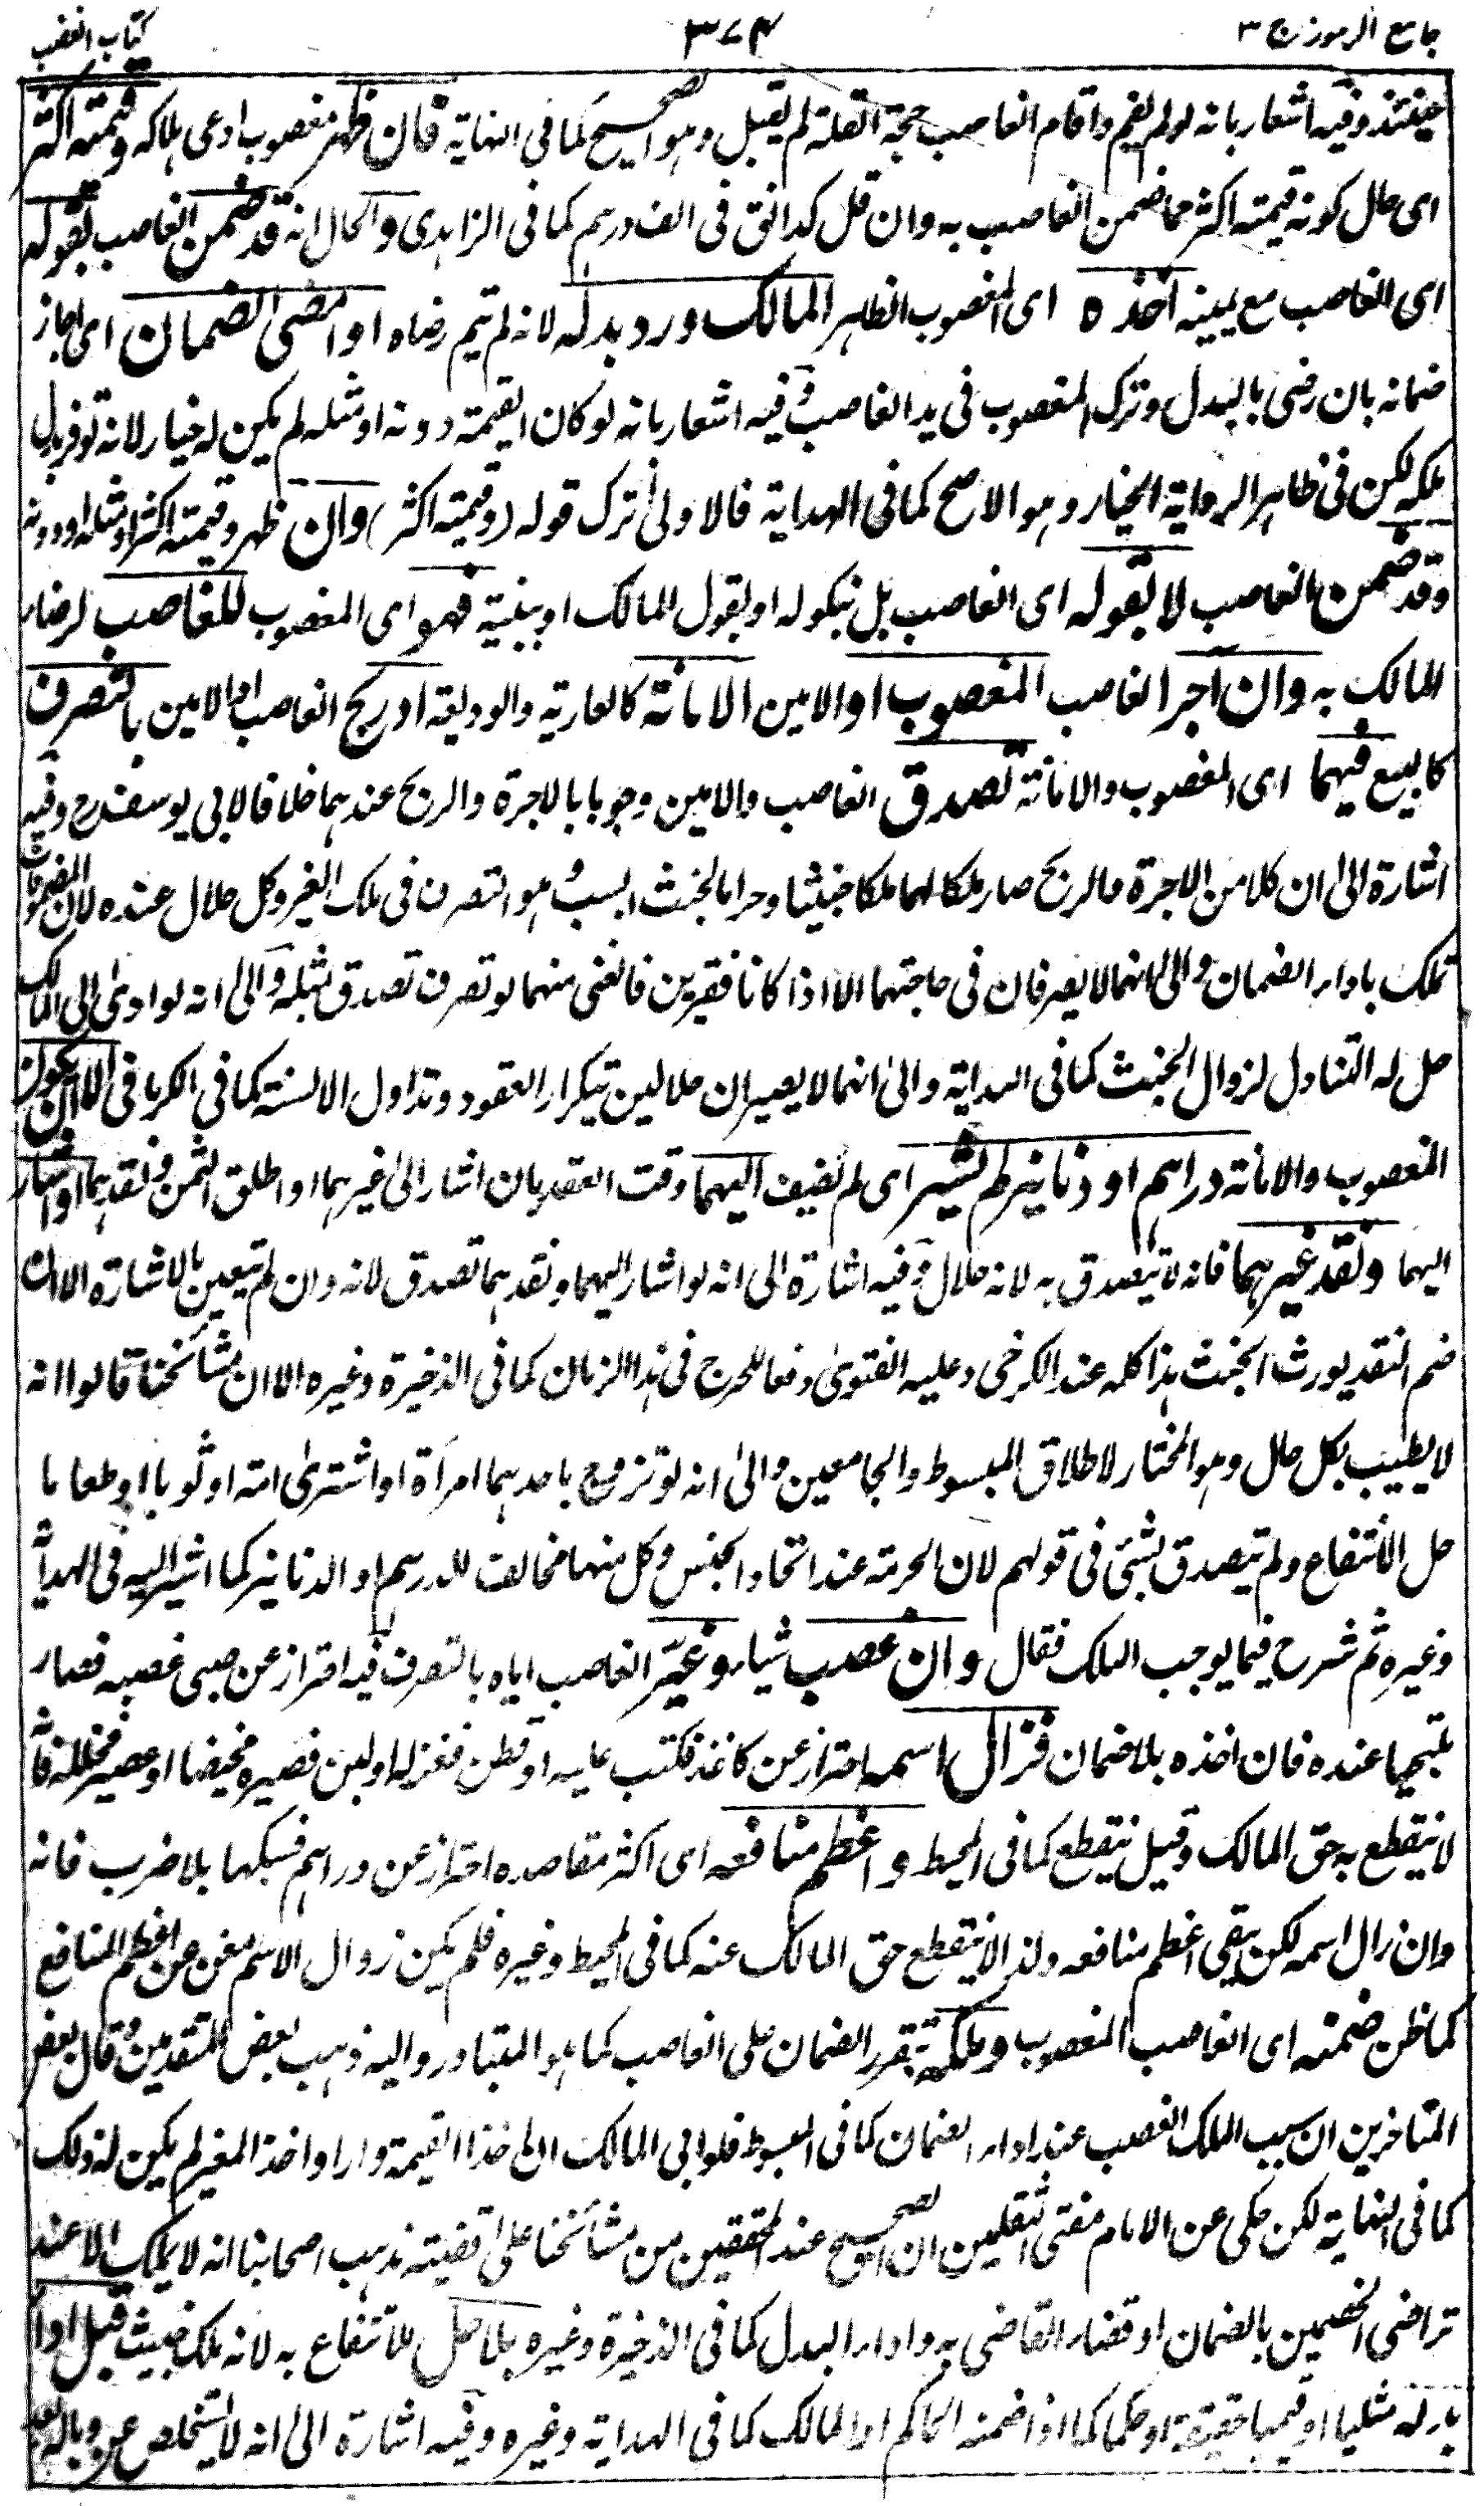 جامع الرموز ج ٣ ٣٧٤ كتاب الغصب
حينئذ وفيه اشعار بانه لو لم يقم واقام الغاصب حجة القلة لم يقبل وهو الصحيح كما في النهاية فان ظهر مغصوب ادعى هلاكه وقيمته اكثر
اى حال كونه قيمته اكثر مما ضمن الغاصب به وان قل كدانق في الف درهم كما في الزاهدى والحال انه قد ضمن الغاصب بقوله
اى الغاصب مع يمينه اخذه اى المغصوب الظاهر المالك ورد بدله لانه لم يتم رضاه او امضى الضمان اى اجاز
ضمانه بان رضى بالبدل وترك المغصوب في يد الغاصب وفيه اشعار بانه لو كان القيمة دونه او مثله لم يكن له خيار لانه توفر بدل
ملكه لكن في ظاهر الرواية الخيار وهو الاصح كما في الهداية فالاولى ترك قوله (وقيمته اكثر) وان ظهر وقيمته اكثر او مثله او دونه
وقد ضمن الغاصب لا بقوله اى الغاصب بل بنكوله او بقول المالك او ببينة فهو اى المغصوب للغاصب لرضاء
المالك به وان آجر الغاصب المغصوب او الامين الامانة كالعارية والوديعة او ربح الغاصب او الامين بالتصرف
كالبيع فيهما اى المغصوب والامانة تصدق الغاصب والامين وجوبا بالاجرة والربح عندهما خلافا لابي يوسف رح وفيه
اشارة الى ان كلا من الاجرة والربح صار ملكا لهما ملكا خبيثا وحراما لخبث السبب هو التصرف في ملك الغير وكل حلال عنده لان المضمونات
تملك باداء الضمان والى انهما لا يصرفان في حاجتهما الا اذا كانا فقيرين فالغنى منهما لو تصرف تصدق بمثله والى انه لو ادى الى المالك
حل له التناول لزوال الخبث كما في الهداية والى انهما لا يصيران حلالين بتكرار العقود وتداول الالسنة كما في الكرمانى الا ان يكون
المغصوب والامانة دراهم او دنانير لم يشر اى لم يضف اليهما وقت العقد بان اشار الى غيرهما او اطلق الثمن ونقدهما او اشار
اليهما ونقد غيرهما فانه لا يتصدق به لانه حلال وفيه اشارة الى انه لو اشار اليهما ونقدهما تصدق لانه وان لم يتعين بالاشارة الا ان
ضم النقد يورث الخبث هذا كله عند الكرخى وعليه الفتوى دفعا للحرج في هذا الزمان كما في الذخيرة وغيره الا ان مشائخنا قالوا انه
لا يطيب بكل حال وهو المختار لاطلاق المبسوط والجامعين والى انه لو تزوج باحدهما امرأة او اشترى امة او ثوبا او طعاما
حل الانتفاع ولم يتصدق بشئ في قولهم لان الحرمة عند اتحاد الجنس وكل منهما مخالف للدرهم او الدنانير كما اشير اليه في الهداية
وغيره ثم شرح فيما يوجب الملك فقال وان غصب شيئا وغيّر الغاصب اياه بالتصرف فيه احتراز عن صبى غصبه فصار
ملتحيا عنده فان اخذه بلا ضمان فزال اسمه احتراز عن كاغذ فكتب عليه او قطن فغزله او لبن فصيره مخيضا او عصير فخلله فانه
لا ينقطع به حق المالك وقيل ينقطع كما في المحيط واعظم منافعه اى اكثر مقاصده احتراز عن دراهم فسبكها بلا ضرب فانه
وان زال اسمه لكن بقى اعظم منافعه ولذا لا ينقطع حق المالك عنه كما في المحيط وغيره فلم يكن زوال الاسم مغن عن اعظم المنافع
كما ظن ضمنه اى الغاصب المغصوب وملكه بتقرر الضمان على الغاصب كما هو المتبادر واليه ذهب بعض المتقدمين وقال بعض
المتاخرين ان سبب الملك الغصب عند اداء الضمان كما في المبسوط فلو ابى المالك اخذ القيمة واراد اخذ المغير لم يكن له ذلك
كما في النهاية لكن حكى عن الامام مفتى الثقلين ان الصحيح عند المحققين من مشائخنا على قضية مذهب اصحابنا انه لا يملك الا عند
تراضى الخصمين بالضمان او قضاء القاضى به واداء البدل كما في الذخيرة وغيره بلا حل للانتفاع به لانه ملك خبيث قبل اداء
بدله مثليا او قيميا حقيقة او حكما كما اذا ضمنه الحاكم او المالك كما في الهداية وغيره وفيه اشارة الى انه لا يتخلص عن وباله